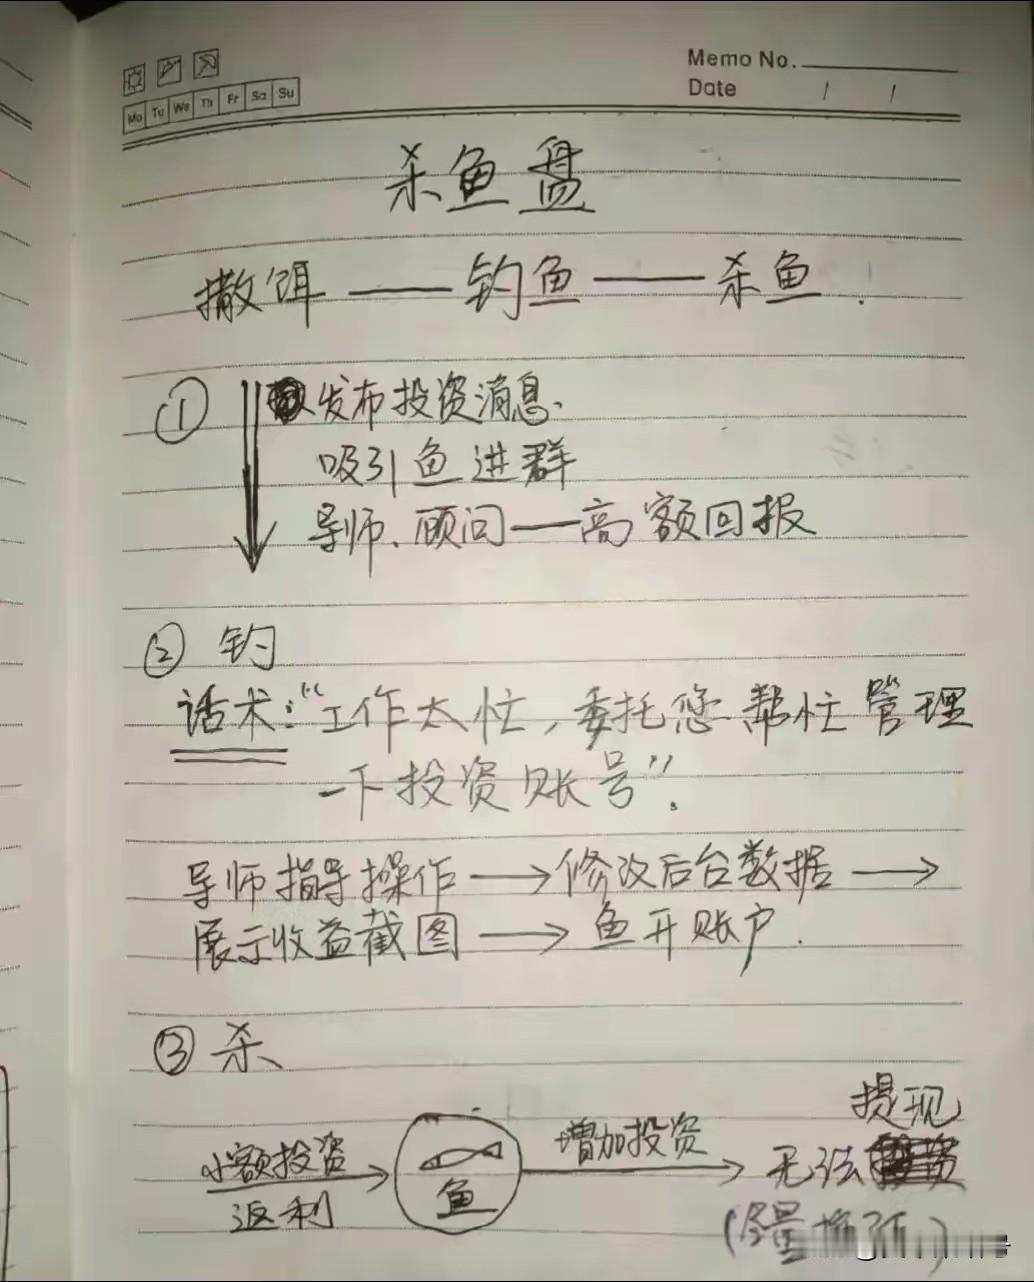 Memo No.
Mo Tu We Th Fr Sa Su
Date / /
杀鱼盘
撒饵——钓鱼——杀鱼.
① 发布投资消息.
吸引鱼进群
导师、顾问——高额回报
② 钓
话术:“工作太忙,委托您帮忙管理
一下投资账号”.
导师指导操作→修改后台数据→
展示收益截图→鱼开账户.
③ 杀
提现
小额投资 增加投资 无法
返利 鱼
(尽量